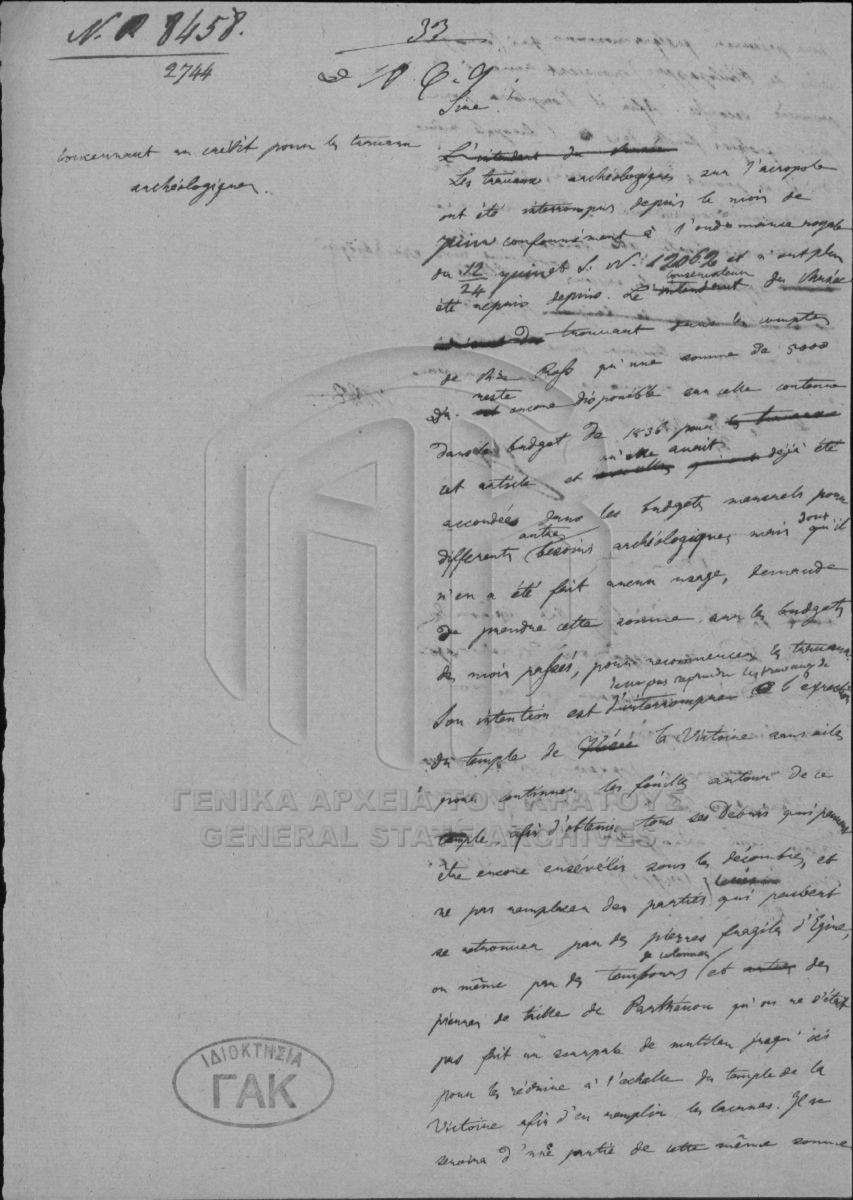 N. 8458.
2744
33
Sire!
Concernant un crédit pour les travaux
archéologiques.
L'intendant du
Les travaux archéologiques sur l'acropole
ont été interrompus depuis le mois de
juin conformément à l'ordonnance royale
du 12/24 juin S. N. 12062 et n'ont plus
été repris depuis. Le conservateur
trouvant dans les comptes
de Mr. Ross qu'une somme de 5000
dr. reste encore disponible sur celle contenue
dans le budget de 1836 pour les travaux
cet article et qu'elle avait déjà été
accordée dans les budgets mensuels pour
differents autres besoins archéologiques mais dont qu'il
n'en a été fait aucun usage, demande
de prendre cette somme sur les budgets
des mois passés, pour recommencer les travaux.
de ne pas reprendre les travaux de
Son intention est d'interrompre l'
du temple de la Victoire sans ailes
pour continuer les fouilles autour de ce
temple afin d'obtenir tous ses débris qui peuvent
être encore ensévélis sous les décombres, et
ne pas remplacer des parties qui peuvent
se retrouver par des pierres fragiles d'Egine,
ou même par des tambours de colonnes et autres des
pierres de taille de Parthénon qu'on ne s'était
pas fait un scrupule de mutiler jusqu'ici
pour les réduire à l'échelle du temple de la
Victoire afin d'en remplir les lacunes. Il se
servira d'une partie de cette même somme
ΓΕΝΙΚΑ ΑΡΧΕΙΑ ΤΟΥ ΚΡΑΤΟΥΣ
GENERAL STATE ARCHIVES
ΙΔΙΟΚΤΗΣΙΑ
ΓΑΚ